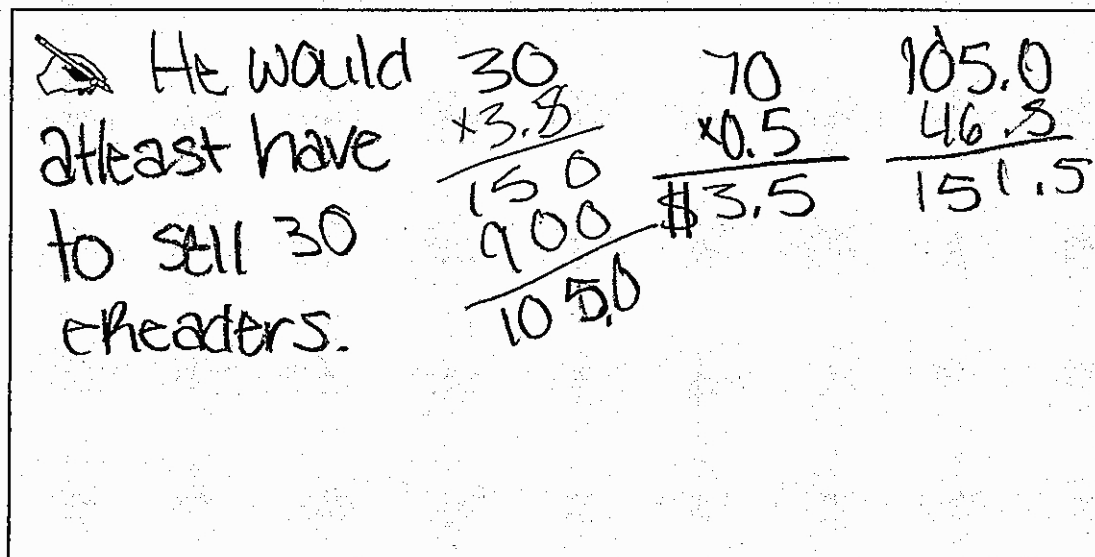 He would
atleast have
to sell 30
eReaders.
30
×3.5
150
900
105.0
70
×0.5
$3.5
105.0
46.5
151.5